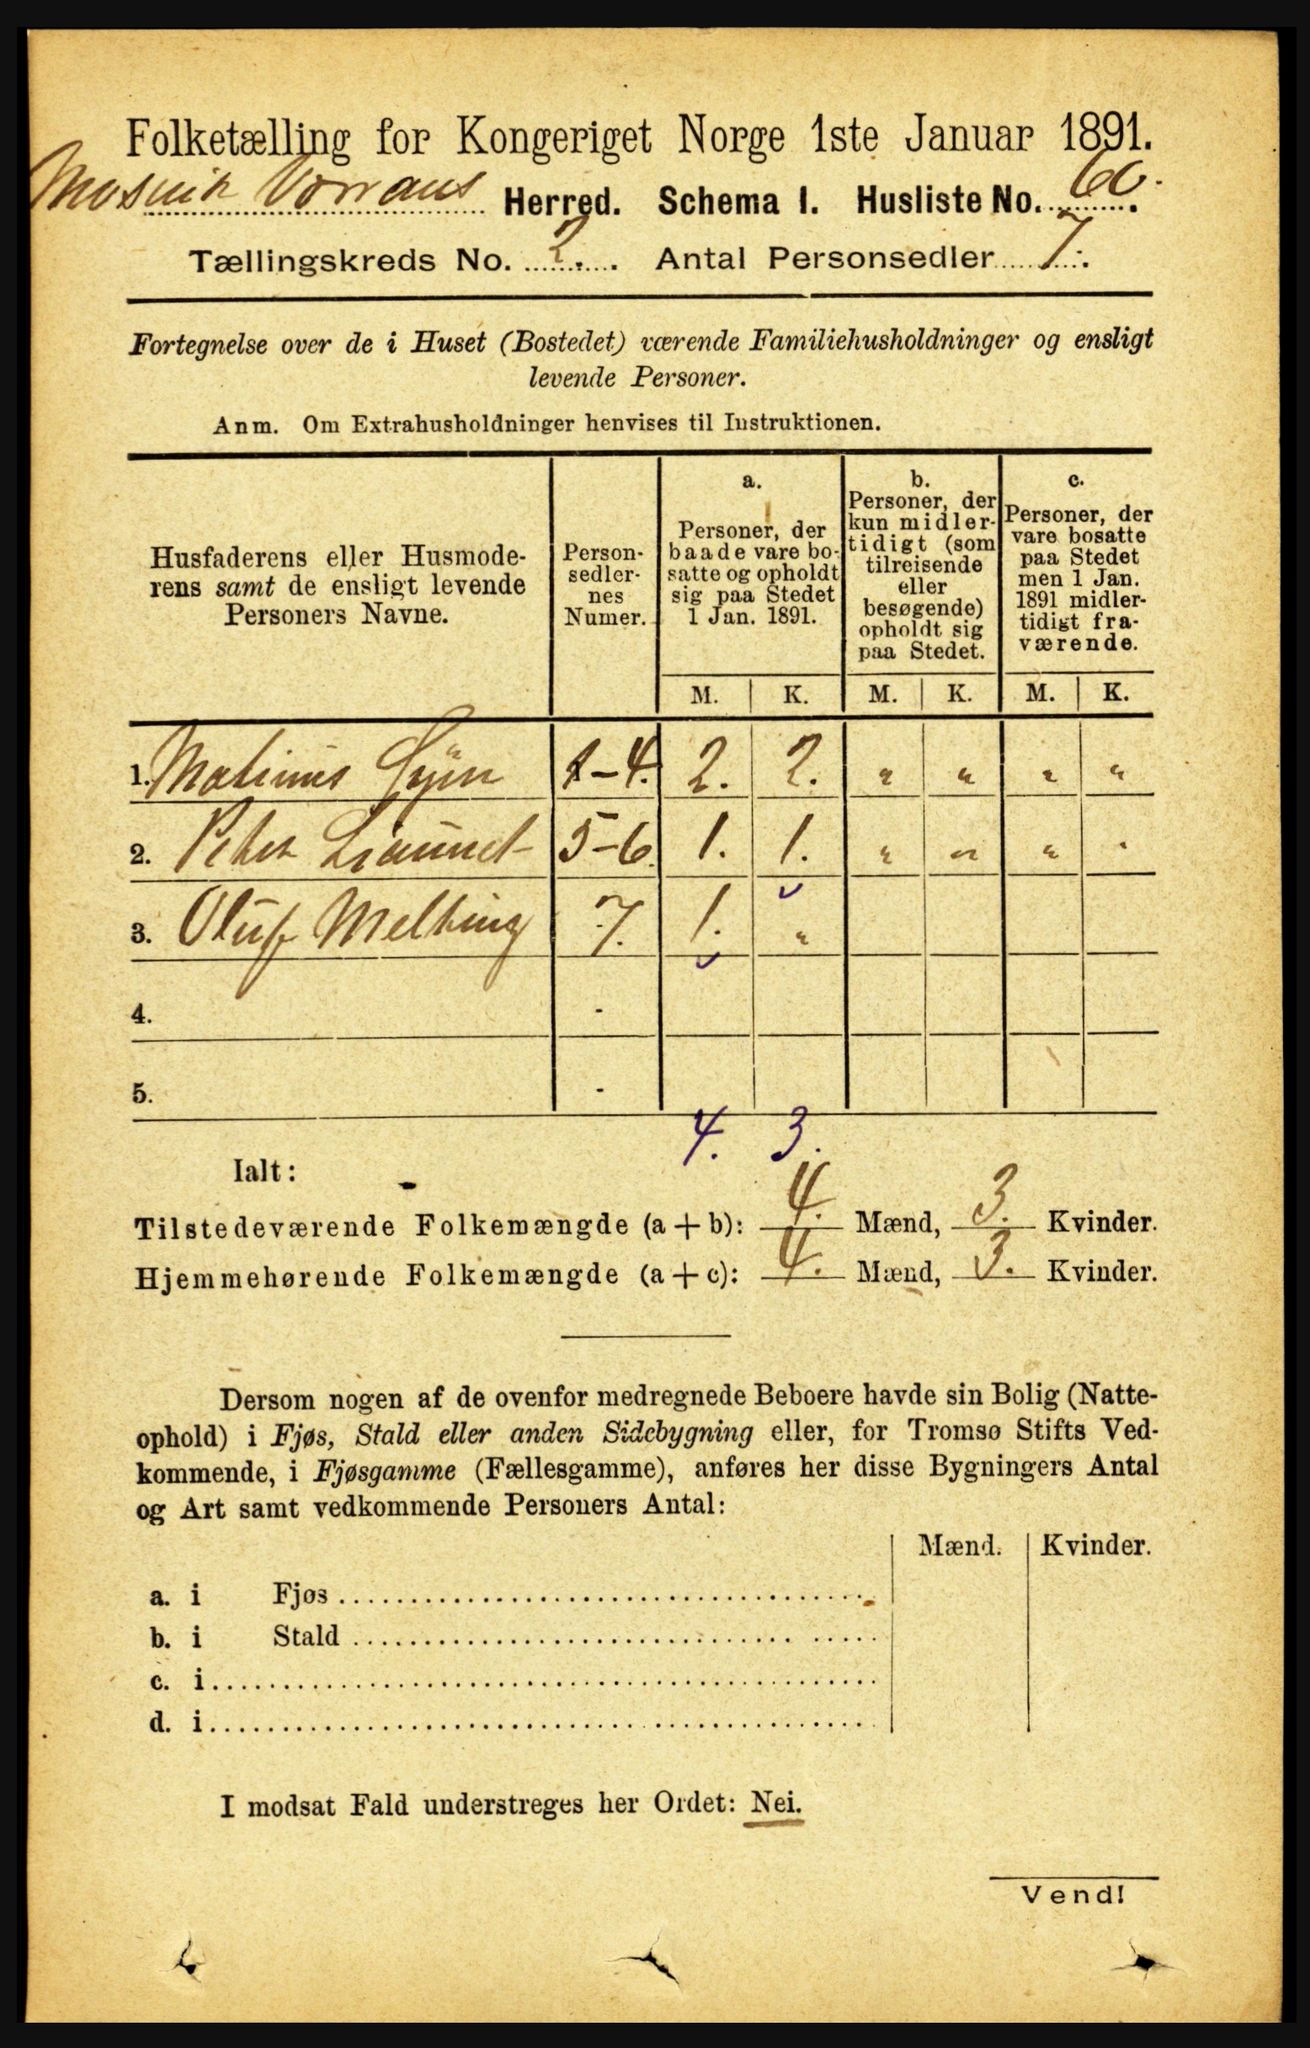 Folketælling for Kongeriget Norge 1ste Januar 1891.
Mosvik Vorrans Herred. Schema I. Husliste No. 60.
Tællingskreds No. 2. Antal Personsedler 7.
Fortegnelse over de i Huset (Bostedet) værende Familiehusholdninger og ensligt
levende Personer.
Anm. Om Extrahusholdninger henvises til Instruktionen.
Husfaderens eller Husmode-
rens samt de ensligt levende
Personers Navne.
Person-
sedler-
nes
Numer.
a.
Personer, der
baade vare bo-
satte og opholdt
sig paa Stedet
1 Jan. 1891.
b.
Personer, der
kun midler-
tidigt (som
tilreisende
eller
besøgende)
opholdt sig
paa Stedet.
c.
Personer, der
vare bosatte
paa Stedet
men 1 Jan.
1891 midler-
tidigt fra-
værende.
M. K. M. K. M. K.
1. 1-4. 2. 2. " " " "
2. Peter 5-6. 1. 1. " " " "
3. Oluf Melting 7. 1. "
4. -
5. -
4. 3.
Ialt:
Tilstedeværende Folkemængde (a + b): 4. Mænd, 3. Kvinder.
Hjemmehørende Folkemængde (a + c): 4. Mænd, 3. Kvinder.
Dersom nogen af de ovenfor medregnede Beboere havde sin Bolig (Natte-
ophold) i Fjøs, Stald eller anden Sidebygning eller, for Tromsø Stifts Ved-
kommende, i Fjøsgamme (Fællesgamme), anføres her disse Bygningers Antal
og Art samt vedkommende Personers Antal:
Mænd. Kvinder.
a. i Fjøs
b. i Stald
c. i
d. i
I modsat Fald understreges her Ordet: Nei.
Vend!